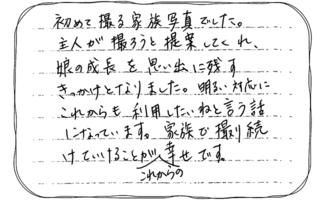 初めて撮る家族写真でした。
主人が撮ろうと提案してくれ、
娘の成長を思い出に残す
きっかけとなりました。明るい対応に
これからも利用したいねと言う話
になっています。家族で撮り続
けていけることが幸せです。
これからの